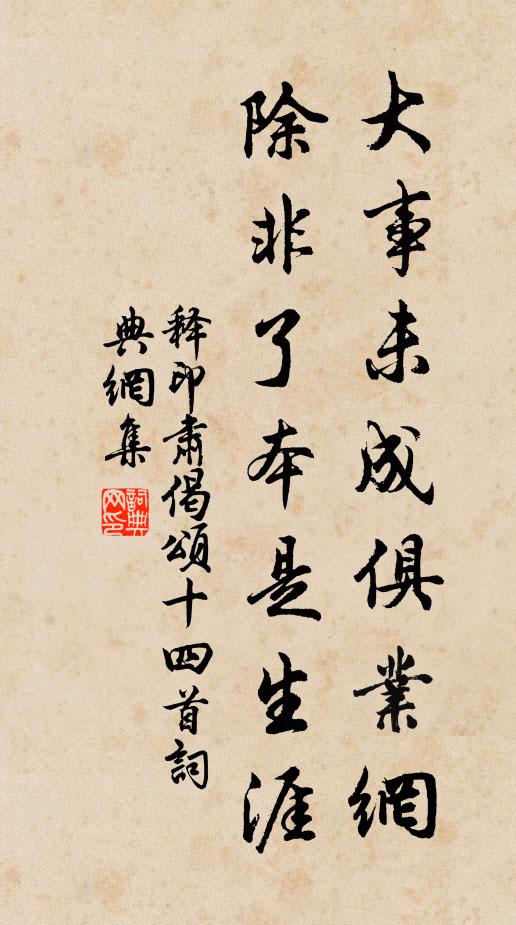 大事未成俱業網
除非了本是生涯
释印肅偈頌十四首詞
典網集
詞典網印